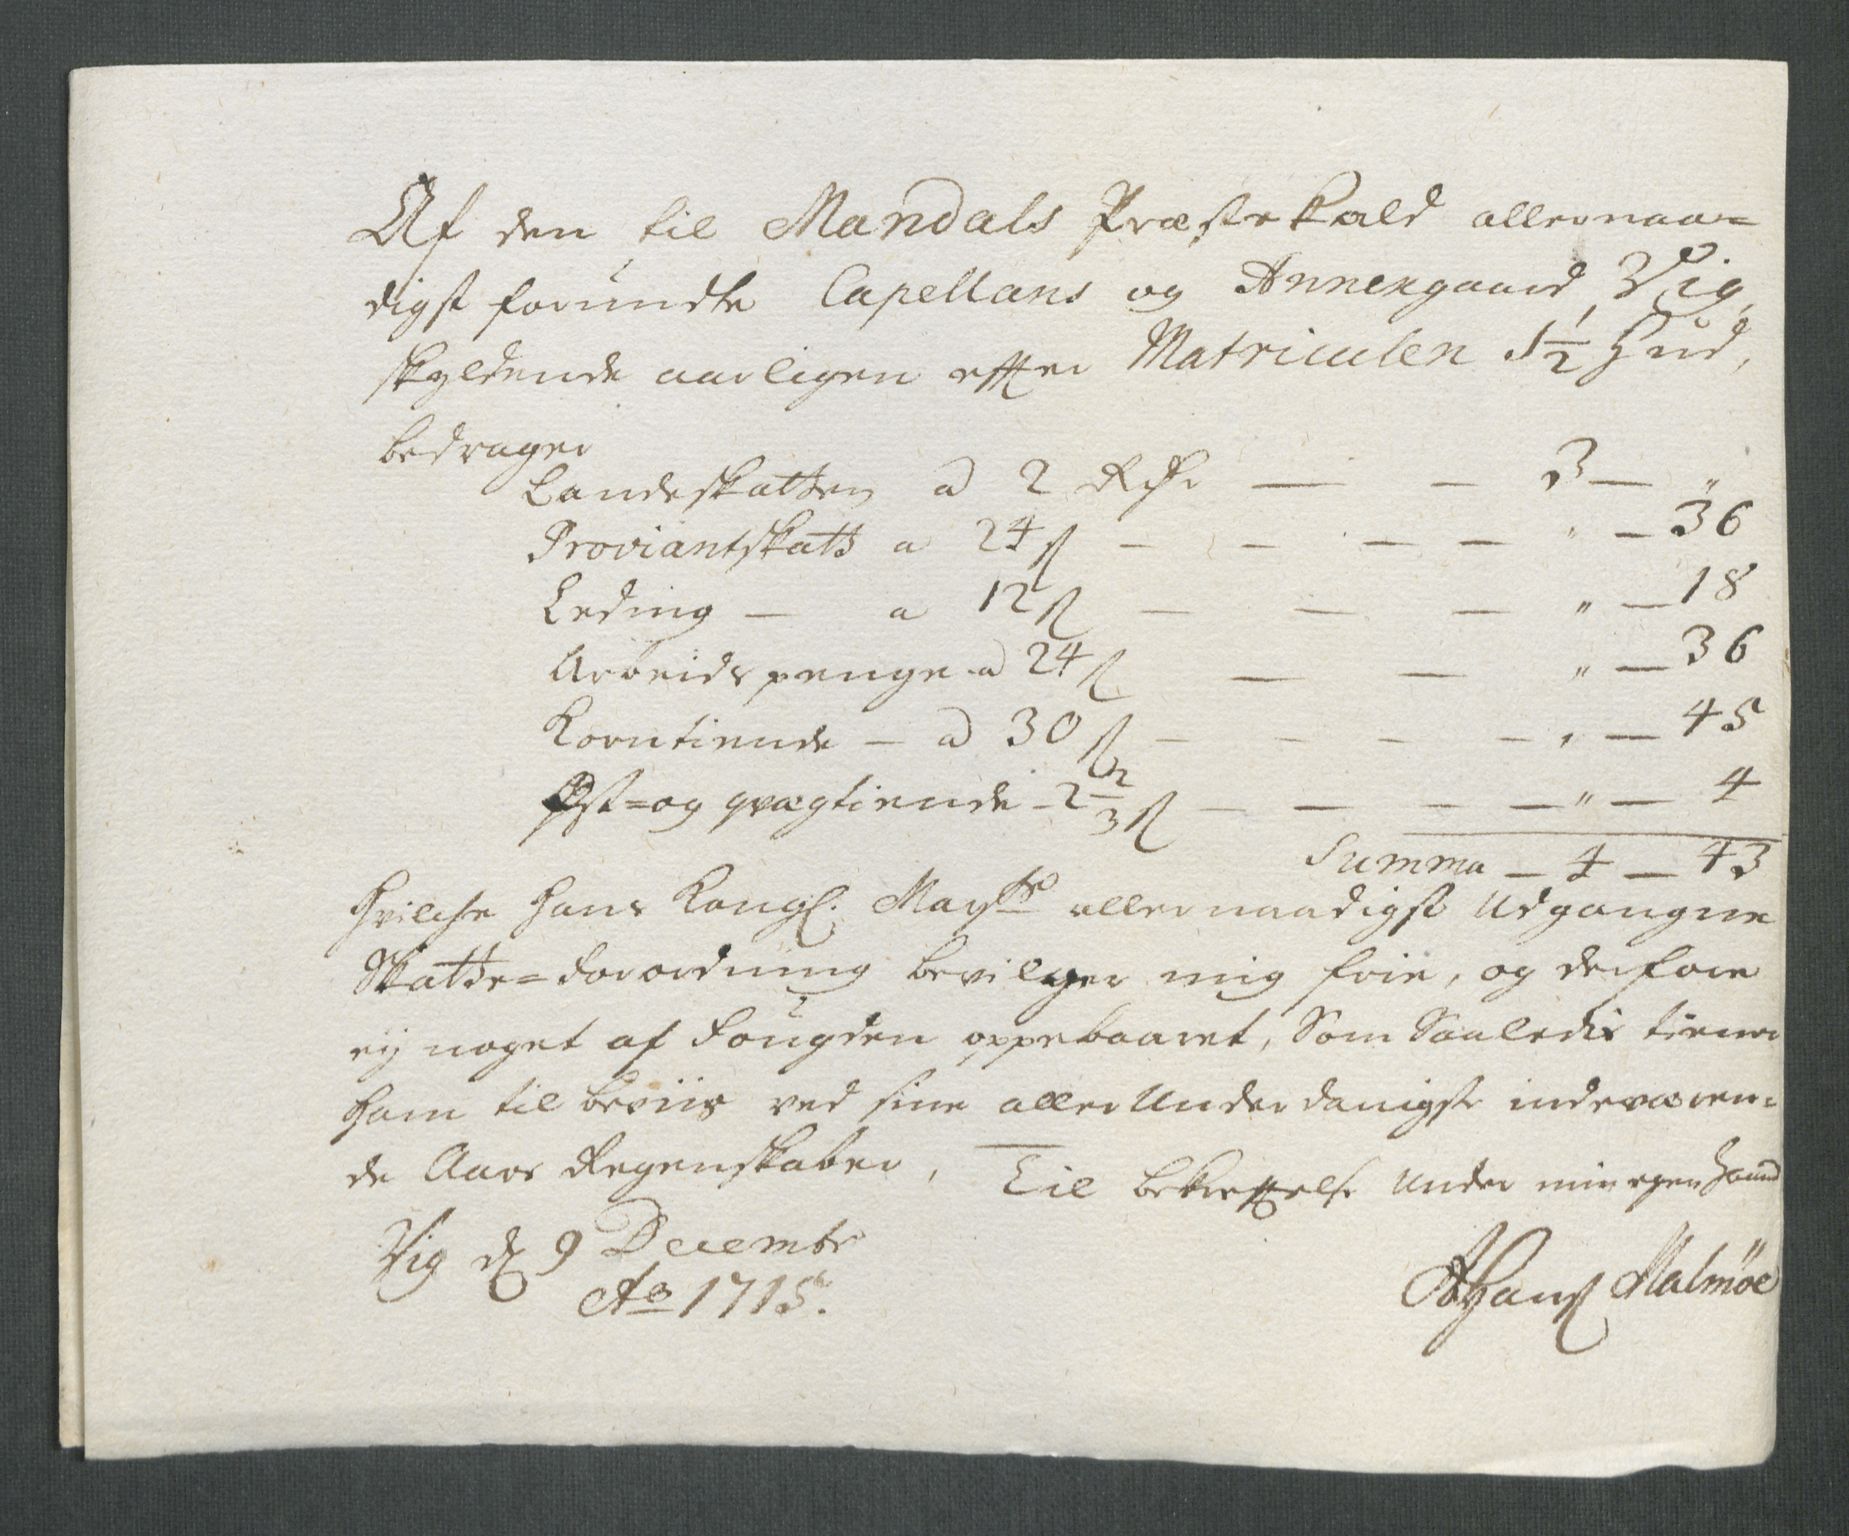 Af den til Mandals Præstekald allernaa=
digst forundte Capellans og Annexgaard Vig,
skyldende aarligen effter Matriculen 1½ Hud,
bedrager
Landeskatten a 2 Rdr — — 3 — "
Proviantskatt a 24 ß — — — — " — 36
Leding — a 12 ß — — — " — 18
Arbeidspenge a 24 ß — — " — 36
Korntiende — a 30 ß — — — — " — 45
Ost= og qvægtiende - 2 2/3 ß — — — — " — 4
Summa — 4 — 43
Hvilche Hans Kongl. Mayts allernaadigst Udgangne
Skatte=Forordning bevilger mig frie, og derfore
ej noget af Fougden oppebaaret, Som Saaledis tiener
ham til beviis ved sine allerunderdanigste indeværen=
de Aars Regenskaber, Til bekreftelse under min egen Haand
Vig d 9 Decembr
Ao 1715.
Hanß Malmöe